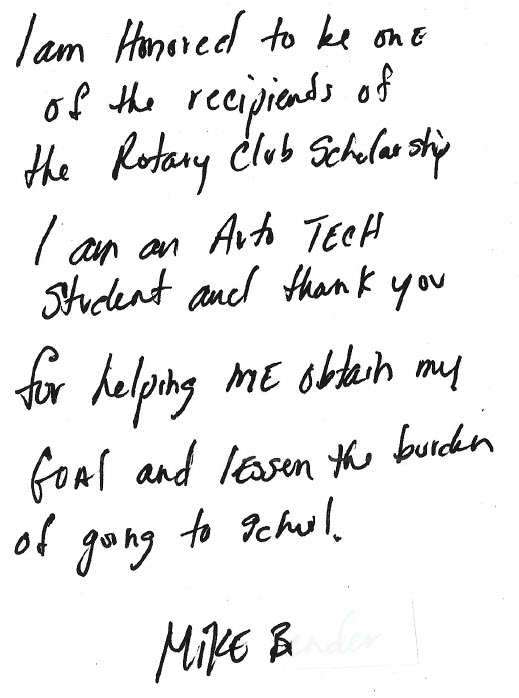 I am Honored to be one
of the recipiends of
the Rotary Club Scholarship
I am an Auto TECH
Student and thank you
for helping ME obtain my
GOAl and lessen the burden
of going to school.
MIKE B